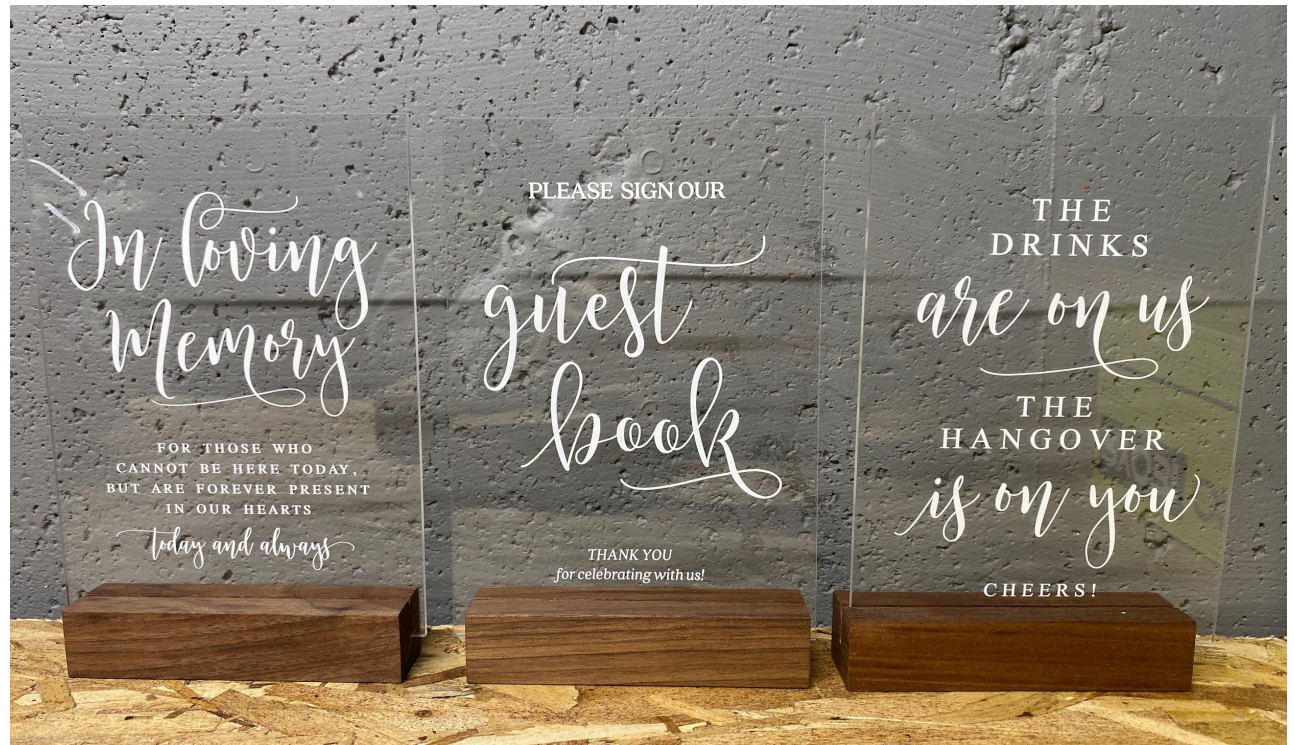 In loving
Memory
FOR THOSE WHO
CANNOT BE HERE TODAY,
BUT ARE FOREVER PRESENT
IN OUR HEARTS
today and always
PLEASE SIGN OUR
guest
book
THANK YOU
for celebrating with us!
THE
DRINKS
are on us
THE
HANGOVER
is on you
CHEERS!